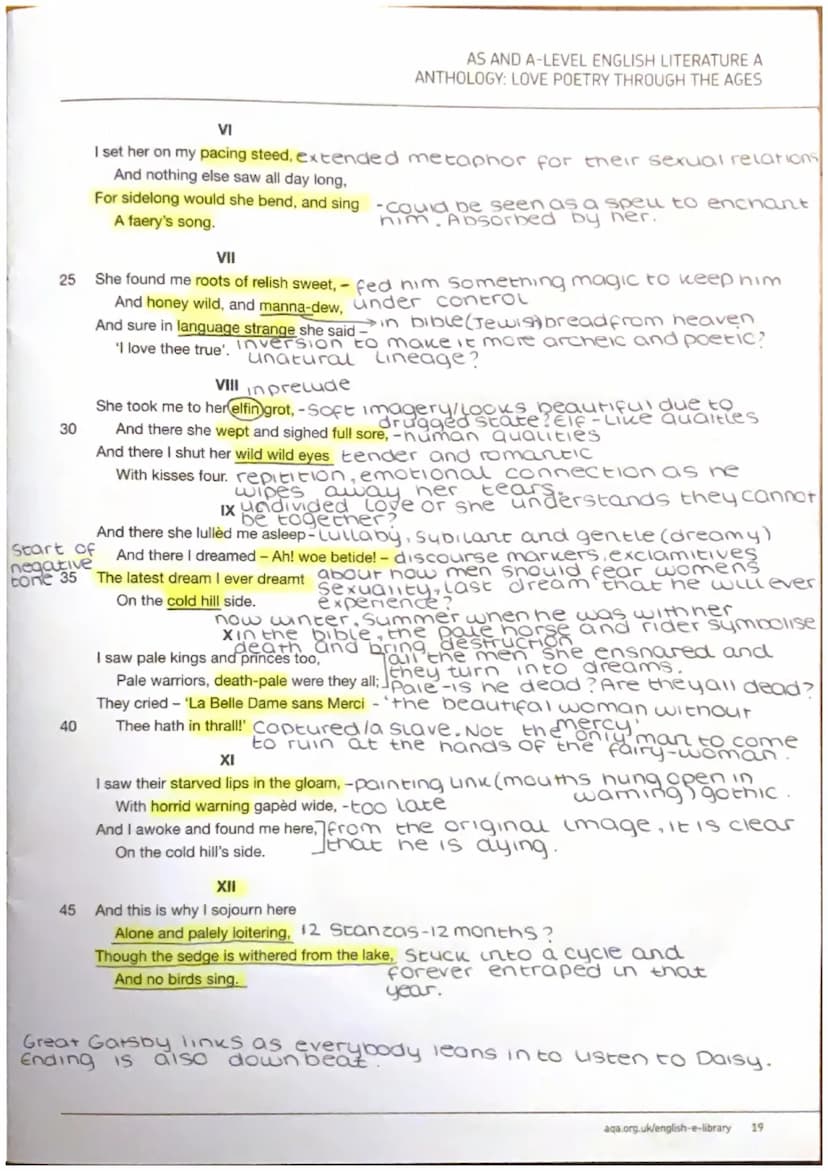 AS AND A-LEVEL ENGLISH LITERATURE A
ANTHOLOGY: LOVE POETRY THROUGH THE AGES
VI
I set her on my pacing steed, extended metaphor for their sexual relations
And nothing else saw all day long,
For sidelong would she bend, and sing - could be seen as a spell to enchant
A faery's song. him. Absorbed by her.
VII
25 She found me roots of relish sweet, – fed him something magic to keep him
And honey wild, and manna-dew, under control
And sure in language strange she said – → in bible (Jewish) bread from heaven
'I love thee true'. inversion to make it more archeic and poetic?
unatural lineage?
VIII in prelude
She took me to her elfin grot, - soft imagery/looks beautiful due to
drugged state? Elf-like qualties
30 And there she wept and sighed full sore, - human qualities
And there I shut her wild wild eyes tender and romantic
With kisses four. repitition, emotional connection as he
wipes away her tears.
IX undivided love or she understands they cannot
be together?
And there she lullèd me asleep - lullaby, sybilant and gentle (dreamy)
Start of
negative
tone
And there I dreamed – Ah! woe betide! – discourse markers, exclamitives
35 The latest dream I ever dreamt about how men should fear womens
sexuality, last dream that he will ever
On the cold hill side. experience?
now winter, summer when he was with her
X in the bible, the pale horse and rider symbolise
death and bring destruction
I saw pale kings and princes too, all the men she ensnared and
they turn into dreams.
Pale warriors, death-pale were they all; Pale - is he dead? Are they all dead?
They cried – 'La Belle Dame sans Merci - 'the beautifal woman without
mercy'
40 Thee hath in thrall!' Captured/a slave. Not the only man to come
to ruin at the hands of the fairy-woman.
XI
I saw their starved lips in the gloam, - painting link (mouths hung open in
warning) gothic.
With horrid warning gapèd wide, - too late
And I awoke and found me here, from the original image, it is clear
On the cold hill's side. that he is dying.
XII
45 And this is why I sojourn here
Alone and palely loitering, 12 Stanzas - 12 months?
Though the sedge is withered from the lake, Stuck into a cycle and
And no birds sing. forever entraped in that
year.
Great Gatsby links as everybody leans in to listen to Daisy.
Ending is also downbeat.
aqa.org.uk/english-e-library 19